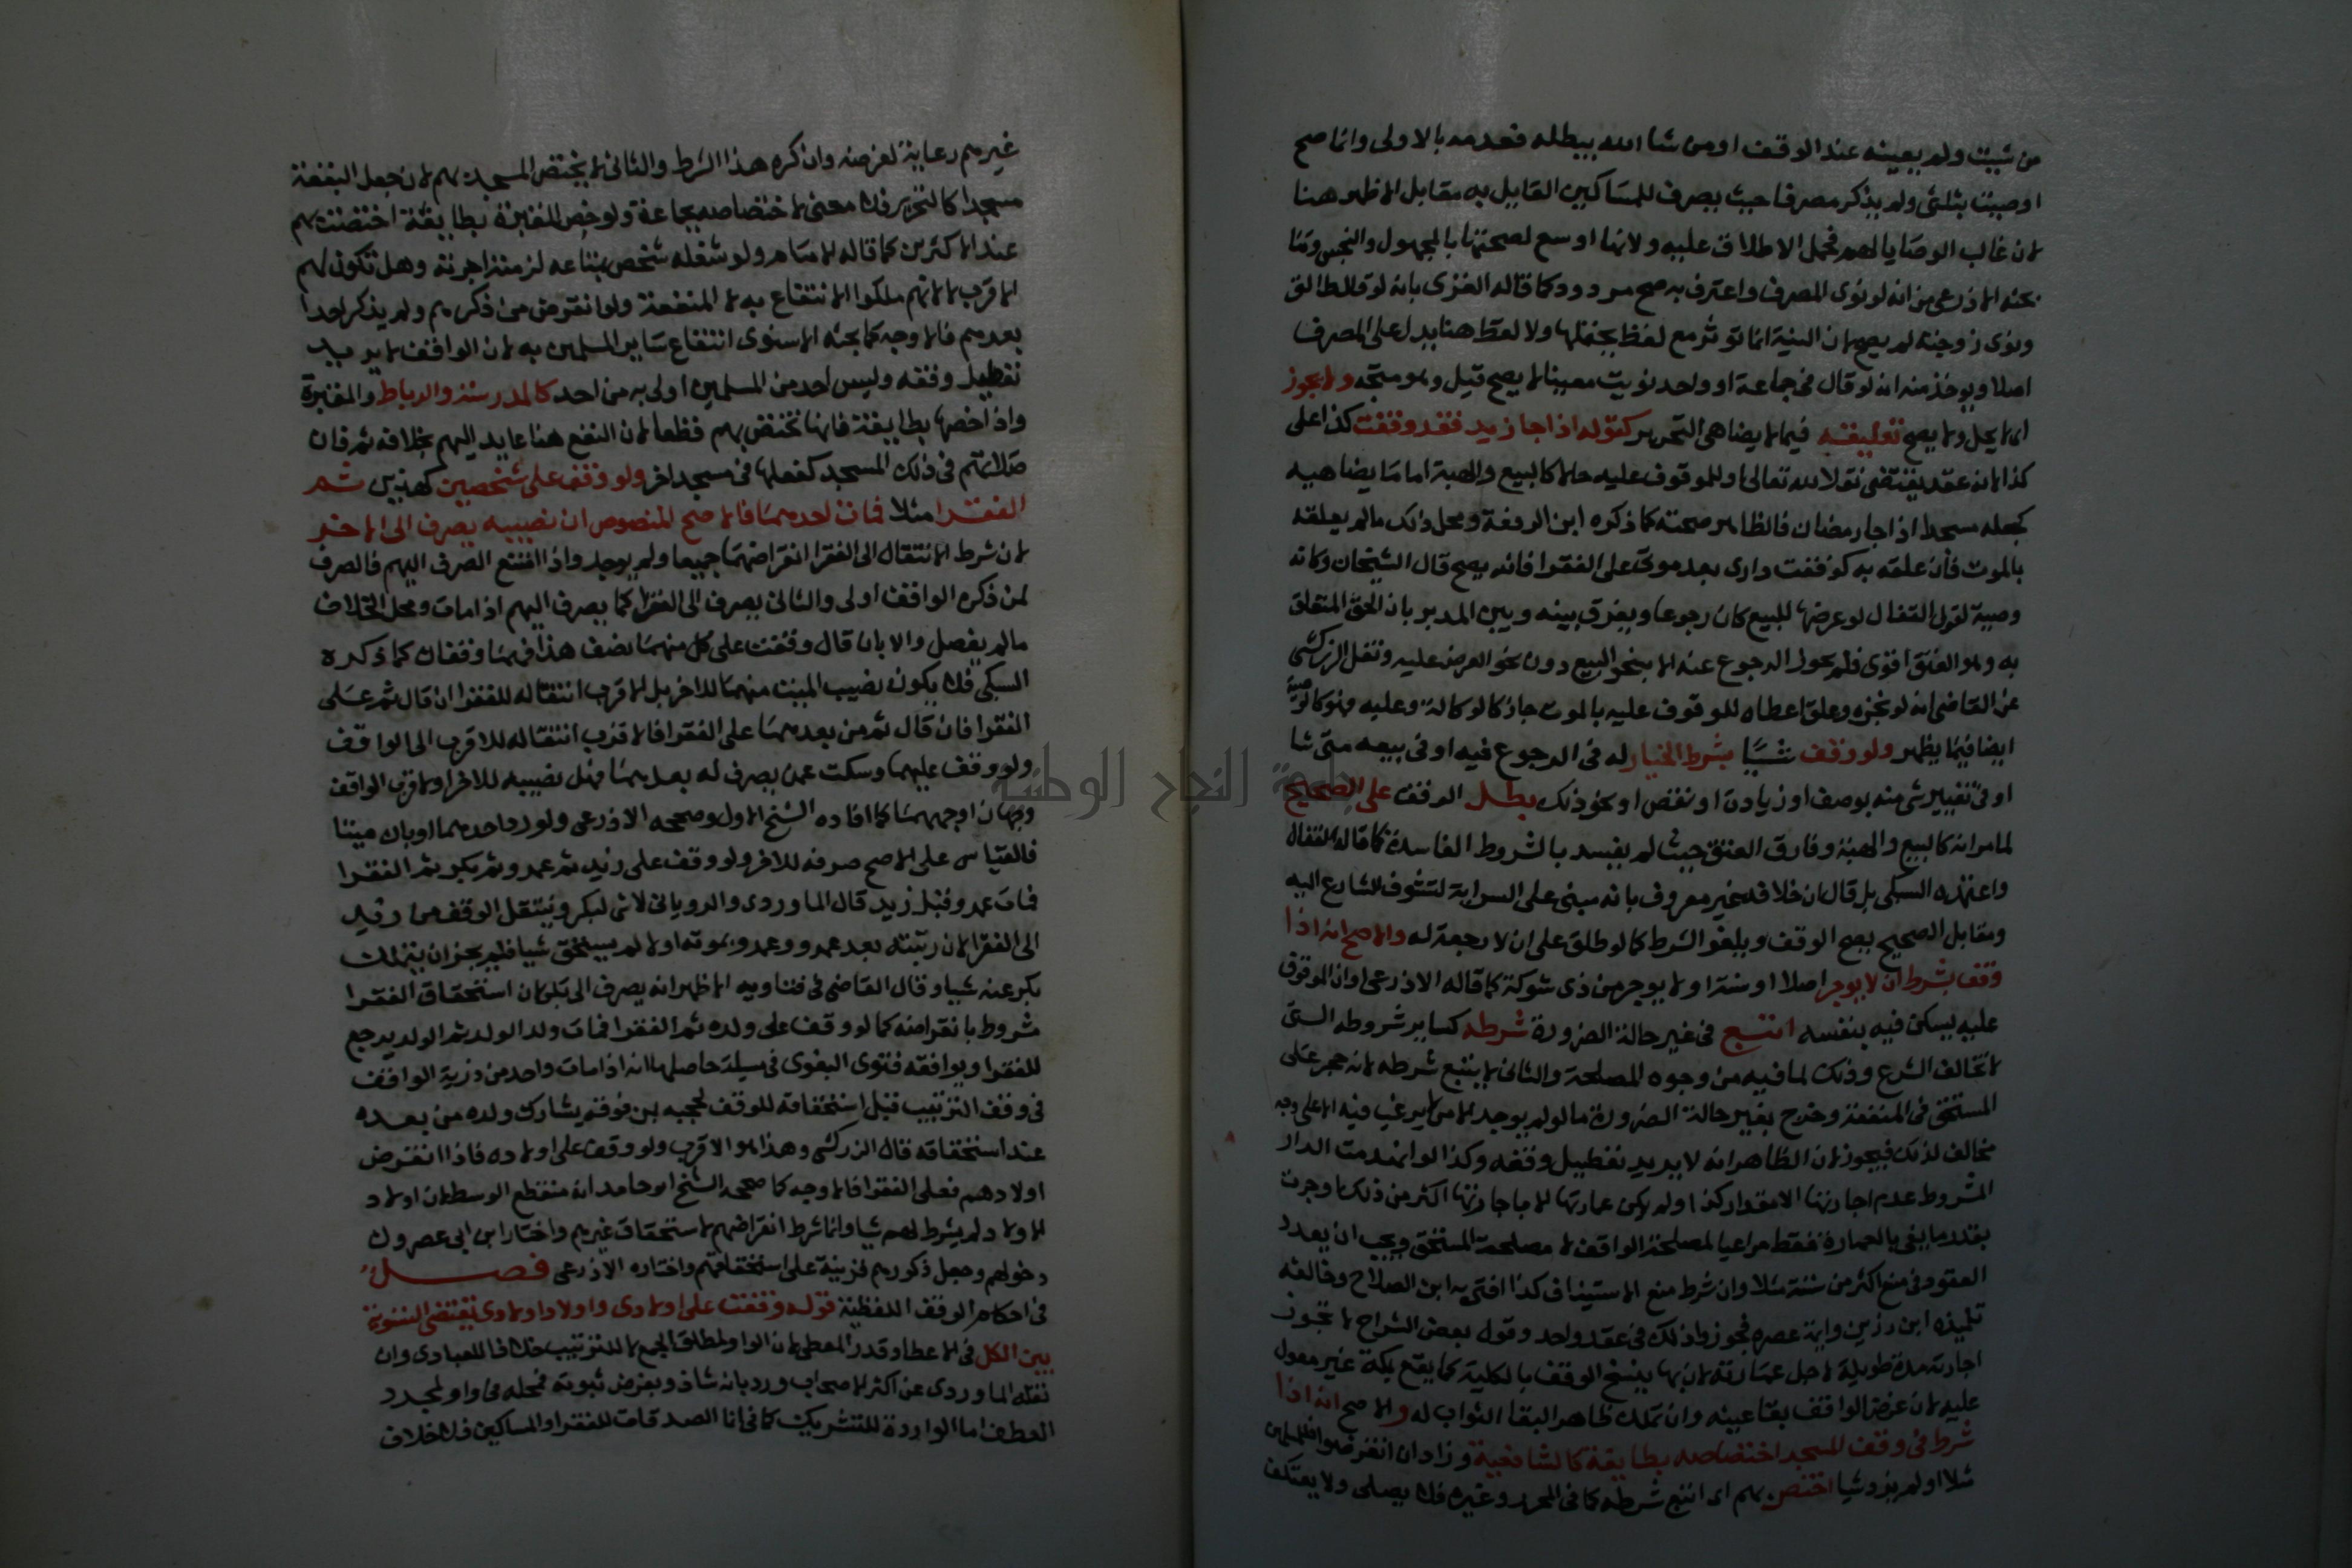 من شيت ولم يعينه عند الوقف او من شا الله يبطله فعدمه بالاولى وانما صح
اوصيت بثلثى ولم يذكر مصرفا حيث يصرف للمساكين القايل به مقابل الاظهر هنا
لان غالب الوصايا لهم فحمل الاطلاق عليه ولانها اوسع لصحتها بالمجهول والنجس وما
بحثه الاذرعى من انه لو نوى المصرف واعترف به صح مردود كما قاله الغزى بانه لو قال طالق
ونوى زوجته لم يصح لان النية انما توثر مع لفظ يحتملها ولا لفظ هنا يدل على المصرف
اصلا ويوخذ منه انه لو قال فى جماعة او واحد نويت معينا لا يصح قيل وهو متجه ولا يجوز
اى لا يحل ولا يصح تعليقه فيما لا يضاهى التحرير كقوله اذا جا زيد فقد وقفت كذا على
كذا لانه عقد يقتضى نقلا لله تعالى او للموقوف عليه حالا كالبيع والهبة اما ما يضاهيه
كجعله مسجدا اذا جا رمضان فالظاهر صحته كما ذكره ابن الرفعة ومحل ذلك ما لم يعلقه
بالموت فان علقه به كوقفت دارى بعد موتى على الفقرا فانه يصح قال الشيخان وكانه
وصية لقول القفال لو عرضها للبيع كان رجوعا ويفرق بينه وبين المدبر بان الحق المتعلق
به وهو العتق اقوى فلم يجز الرجوع عنه الا بنحو البيع دون نحو العرض عليه ونقل الزركشى
عن القاضى انه لو نجزه وعلق اعطاه للموقوف عليه بالموت جاز كالوكالة وعليه فهو كالوصية
ايضا فيما يظهر ولو وقف شيئا بشرط الخيار له فى الرجوع فيه او فى بيعه متى شا
او فى تغيير شى منه بوصف او زيادة او نقص او نحو ذلك بطل الوقف على الصحيح
لما مر انه كالبيع والهبة وفارق العتق حيث لم يفسد بالشروط الفاسدة كما قاله القفال
واعتمده السبكى بل قال ان خلافه غير معروف بانه مبنى على السراية لتشوف الشارع اليه
ومقابل الصحيح يصح الوقف ويلغو الشرط كما لو طلق على ان لا رجعة له والاصح انه اذا
وقف بشرط ان لا يوجر اصلا او سنة او لا يوجر من ذى شوكة كما قاله الاذرعى او ان الموقوف
عليه يسكن فيه بنفسه اتبع فى غير حالة الضرورة شرطه كساير شروطه التى
لا تخالف الشرع وذلك لما فيه من وجوه المصلحة والثانى لا يتبع شرطه لانه حجر على
المستحق فى المنفعة وخرج بغير حالة الضرورة ما لو لم يوجد الا من لا يرغب فيه الا على وجه
مخالف لذلك فيجوز لان الظاهر انه لا يريد تعطيل وقفه وكذا لو انهدمت الدار
المشروط عدم اجارتها الا مقدار كذا ولم يمكن عمارتها الا باجارتها اكثر من ذلك اوجرت
بقدر ما يفى بالعمارة فقط مراعيا لمصلحة الواقف لا مصلحة المستحق ويجب ان يعدد
العقود فى منع اكثر من سنة مثلا وان شرط منع الاستيناف كذا افتى به ابن الصلاح وخالفه
تلميذه ابن رزين وايمة عصره فجوزوا ذلك فى عقد واحد وقول بعض الشراح لا تجوز
اجارته مدة طويلة لاجل عمارته لان بها ينفسخ الوقف بالكلية كما يقع بمكة غير معول
عليه لان غرض الواقف بقا عينه وان تملك ظاهرا لبقا الثواب له والاصح انه اذا
شرط فى وقف المسجد اختصاصه بطايفة كالشافعية وزاد ان انقرضوا فللمسلمين
مثلا او لم يزد شيا اختص بهم اى اتبع شرطه كما فى المحرر وغيره فلا يصلى ولا يعتكف
غيرهم رعاية لغرضه وان كره هذا الشرط والثانى لا يختص المسجد بهم لان جعل البقعة
مسجدا كالتحرير فلا معنى لاختصاصه بجماعة ولو خص المقبرة بطايفة اختصت بهم
عند الاكثرين كما قاله الامام ولو شغله شخص بمتاعه لزمته اجرته وهل تكون لهم
الاقرب لا لانهم ملكوا الانتفاع به لا المنفعة ولو انقرض من ذكرهم ولم يذكر احدا
بعدهم فالاوجه كما بحثه الاسنوى انتفاع ساير المسلمين به لان الواقف لا يريد
تعطيل وقفه وليس احد من المسلمين اولى به من احد كالمدرسة والرباط والمقبرة
واذا خصها بطايفة فانها تختص بهم قطعا لان النفع هنا عايد اليهم بخلافه ثم فان
صلاتهم فى ذلك المسجد كفعلها فى مسجد اخر ولو وقف على شخصين كهذين ثم
الفقرا مثلا فمات احدهما فالاصح المنصوص ان نصيبه يصرف الى الاخر
لان شرط الانتقال الى الفقرا انقراضهما جميعا ولم يوجد واذا امتنع الصرف اليهم فالصرف
لمن ذكره الواقف اولى والثانى يصرف الى الفقرا كما يصرف اليهم اذا ماتا ومحل الخلاف
ما لم يفصل والا بان قال وقفت على كل منهما نصف هذا فهما وقفان كما ذكره
السبكى فلا يكون نصيب الميت منهما للاخر بل الاقرب انتقاله للفقرا ان قال ثم على
الفقرا فان قال ثم من بعدهما على الفقرا فالاقرب انتقاله للاقرب الى الواقف
ولو وقف عليهما وسكت عمن يصرف له بعدهما فهل نصيبه للاخر او لاقرب الواقف
وجهان اوجههما كما افاده الشيخ الاول وصححه الاذرعى ولو رد احدهما او بان ميتا
فالقياس على الاصح صرفه للاخر ولو وقف على زيد ثم عمرو ثم بكر ثم الفقرا
فمات عمرو قبل زيد قال الماوردى والرويانى لا شى لبكر وينتقل الوقف من زيد
الى الفقرا لان رتبته بعد عمرو وعمرو بموته اولا لم يستحق شيا فلم يجز ان يتملك
بكر عنه شيا وقال القاضى فى فتاويه الاظهر انه يصرف الى بكر لان استحقاق الفقرا
مشروط بانقراضه كما لو وقف على ولده ثم ولد ولده ثم الفقرا فمات ولد الولد ثم الولد يرجع
للفقرا ويوافقه فتوى البغوى فى مسيلة حاصلها انه اذا مات واحد من ذرية الواقف
فى وقف الترتيب قبل استحقاقه للوقف لحجبه بمن فوقه يشارك ولده من بعده
عند استحقاقه قال الزركشى وهذا هو الاقرب ولو وقف على اولاده فاذا انقرض
اولادهم فعلى الفقرا فالاوجه كما صححه الشيخ ابو حامد انه منقطع الوسط لان اولاد
الاولاد لم يشرط لهم شيا وانما شرط انقراضهم لاستحقاق غيرهم واختار ابن ابى عصرون
دخولهم وجعل ذكرهم قرينة على استحقاقهم واختاره الاذرعى فصل
فى احكام الوقف اللفظية قوله وقفت على اولادى واولاد اولادى يقتضى التسوية
بين الكل فى الاعطا وقدر المعطى لان الواو لمطلق الجمع لا للترتيب خلافا للعبادى وان
نقله الماوردى عن اكثر الاصحاب ورد بانه شاذ وبفرض ثبوته فمحله فى واو لمجرد
العطف اما الواردة للتشريك كما فى انما الصدقات للفقرا والمساكين فلا خلاف
جامعة النجاح الوطنية